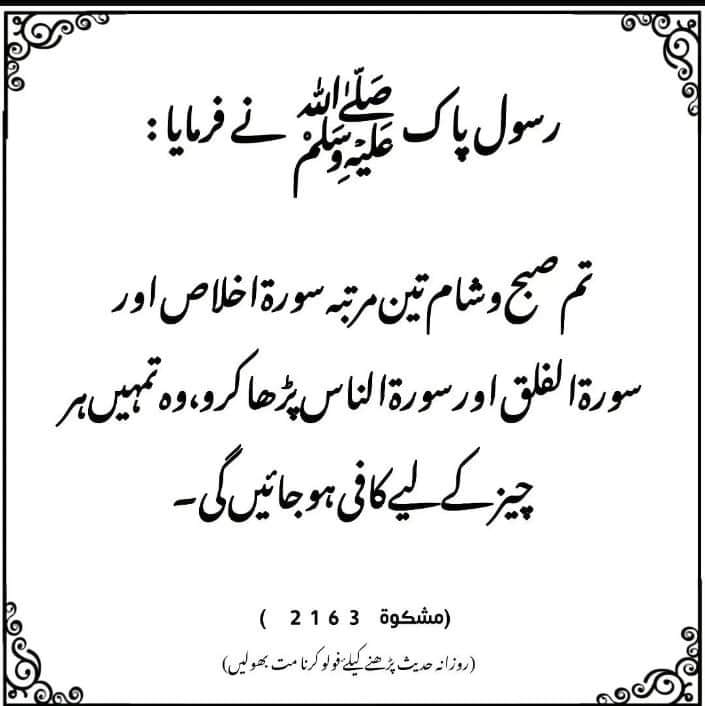 رسول پاک ﷺ نے فرمایا:
تم صبح و شام تین مرتبہ سورۃ اخلاص اور
سورۃ الفلق اور سورۃ الناس پڑھا کرو، وہ تمہیں ہر
چیز کے لیے کافی ہو جائیں گی۔
(مشکوۃ 2163 )
(روزانہ حدیث پڑھنے کیلئے فولو کرنا مت بھولیں)